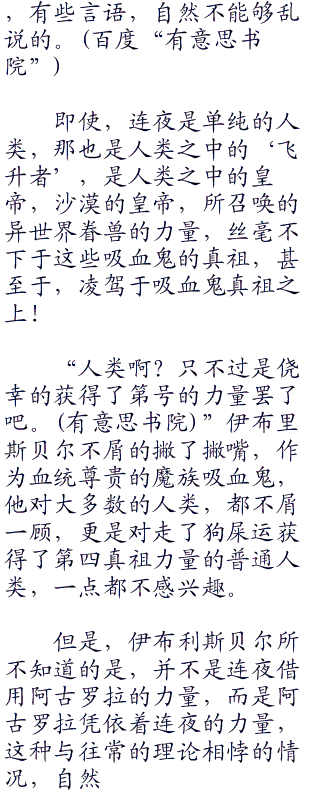 ，有些言语，自然不能够乱
说的。(百度“有意思书
院”)
即使，连夜是单纯的人
类，那也是人类之中的‘飞
升者’，是人类之中的皇
帝，沙漠的皇帝，所召唤的
异世界眷兽的力量，丝毫不
下于这些吸血鬼的真祖，甚
至于，凌驾于吸血鬼真祖之
上！
“人类啊？只不过是侥
幸的获得了第号的力量罢了
吧。(有意思书院)”伊布里
斯贝尔不屑的撇了撇嘴，作
为血统尊贵的魔族吸血鬼，
他对大多数的人类，都不屑
一顾，更是对走了狗屎运获
得了第四真祖力量的普通人
类，一点都不感兴趣。
但是，伊布利斯贝尔所
不知道的是，并不是连夜借
用阿古罗拉的力量，而是阿
古罗拉凭依着连夜的力量，
这种与往常的理论相悖的情
况，自然